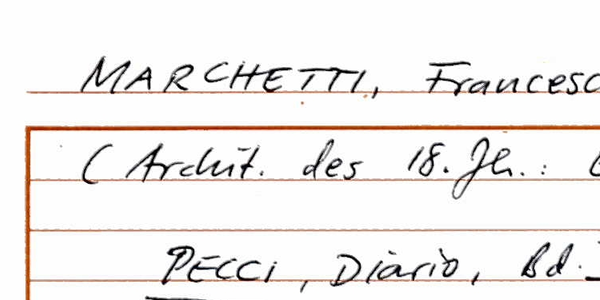 MARCHETTI, Francesc
( Archit. des 18. Jh.:
PECCI, Diario, Bd.